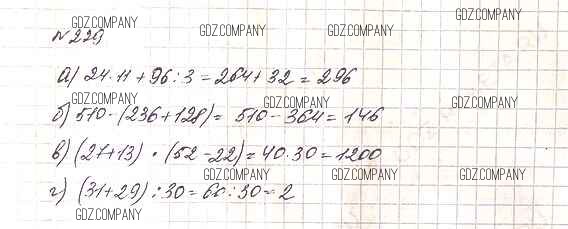 GDZ.COMPANY GDZ.COMPANY GDZ.COMPANY
№229
а) 24·11+96:3=264+32=296
GDZ.COMPANY GDZ.COMPANY GDZ.COMPANY
б) 510-(236+128)= 510-364=146
в) (27+13)·(52-22)=40·30=1200
GDZ.COMPANY GDZ.COMPANY GDZ.COMPANY
г) (31+29):30=60:30=2
GDZ.COMPANY